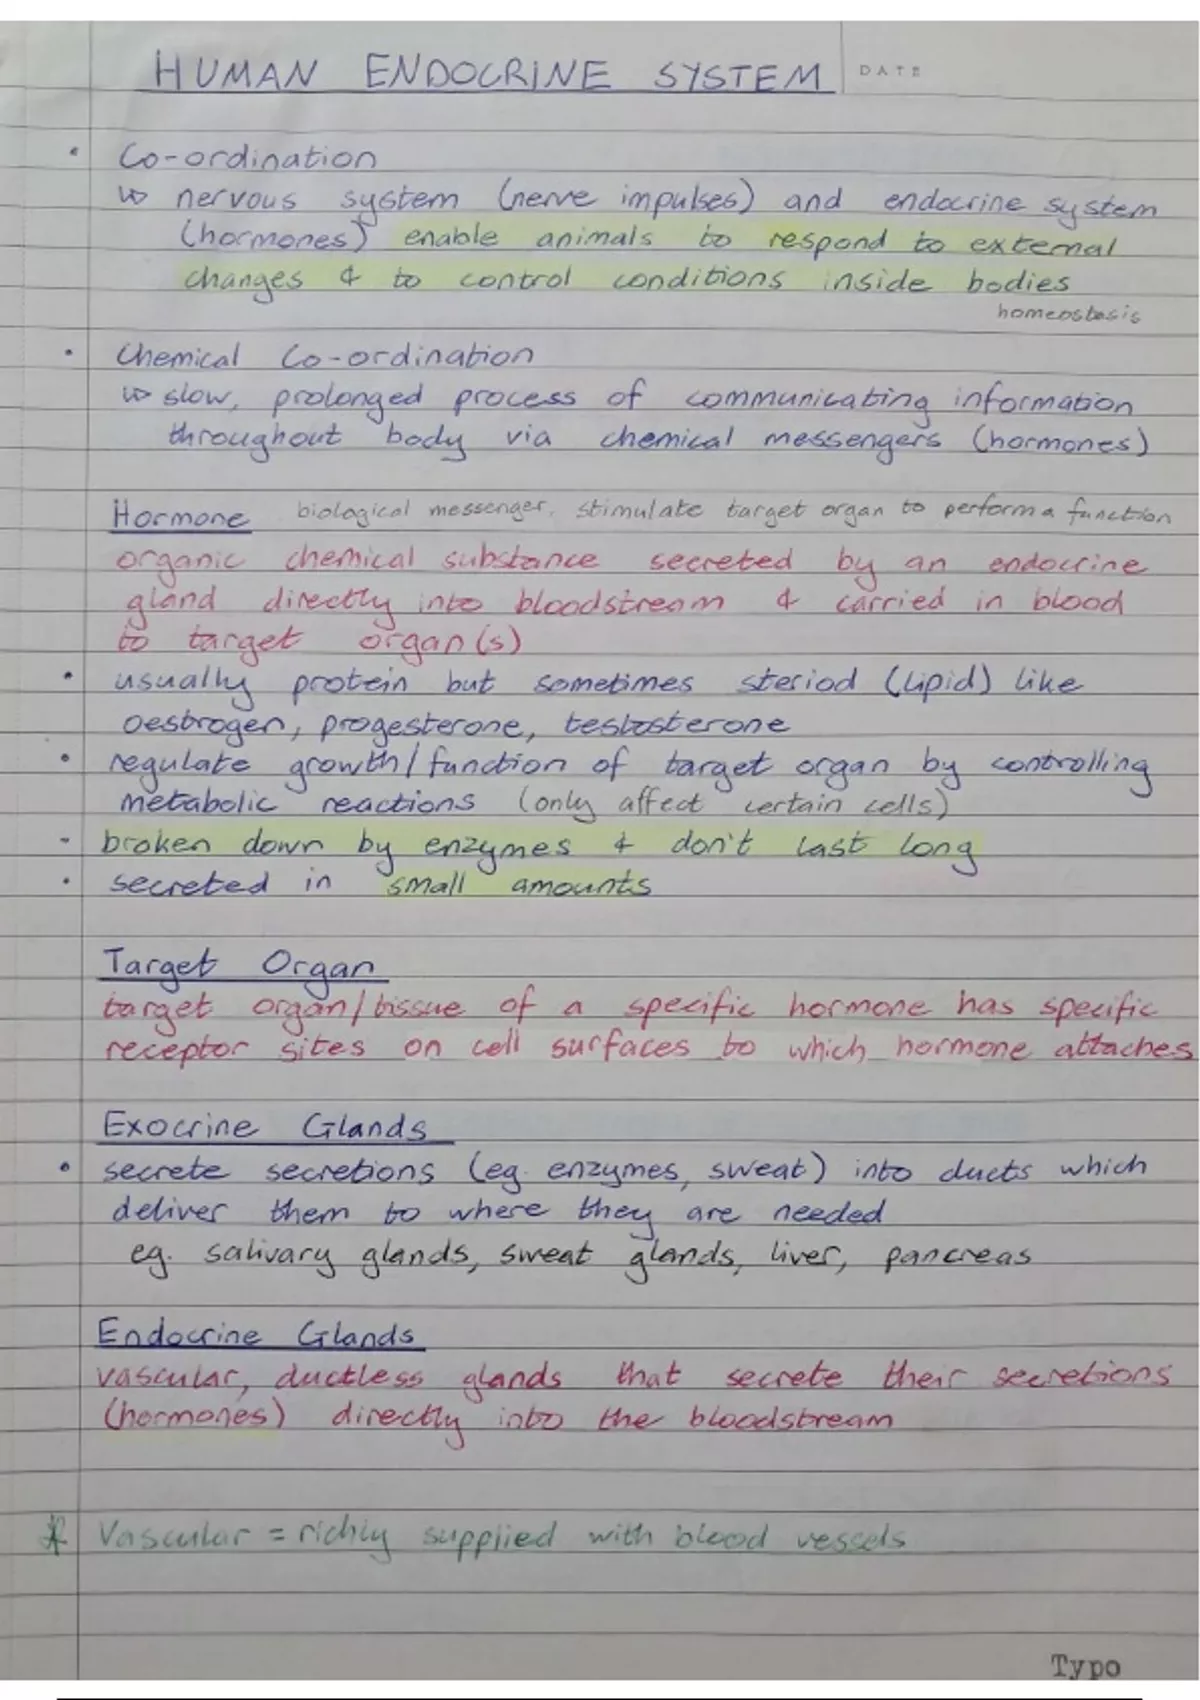 HUMAN ENDOCRINE SYSTEM DATE
• Co-ordination
↳ nervous system (nerve impulses) and endocrine system
(hormones) enable animals to respond to external
changes & to control conditions inside bodies
homeostasis
• Chemical Co-ordination
↳ slow, prolonged process of communicating information
throughout body via chemical messengers (hormones)
Hormone biological messenger, stimulate target organ to perform a function
organic chemical substance secreted by an endocrine
gland directly into bloodstream & carried in blood
to target organ(s)
• usually protein but sometimes steriod (lipid) like
oestrogen, progesterone, testosterone
• regulate growth/function of target organ by controlling
metabolic reactions (only affect certain cells)
• broken down by enzymes & don't last long
• secreted in small amounts
Target Organ
target organ/tissue of a specific hormone has specific
receptor sites on cell surfaces to which hormone attaches
Exocrine Glands
• secrete secretions (eg. enzymes, sweat) into ducts which
deliver them to where they are needed
eg. salivary glands, sweat glands, liver, pancreas
Endocrine Glands
vascular, ductless glands that secrete their secretions
(hormones) directly into the bloodstream
* Vascular = richly supplied with blood vessels
Typo